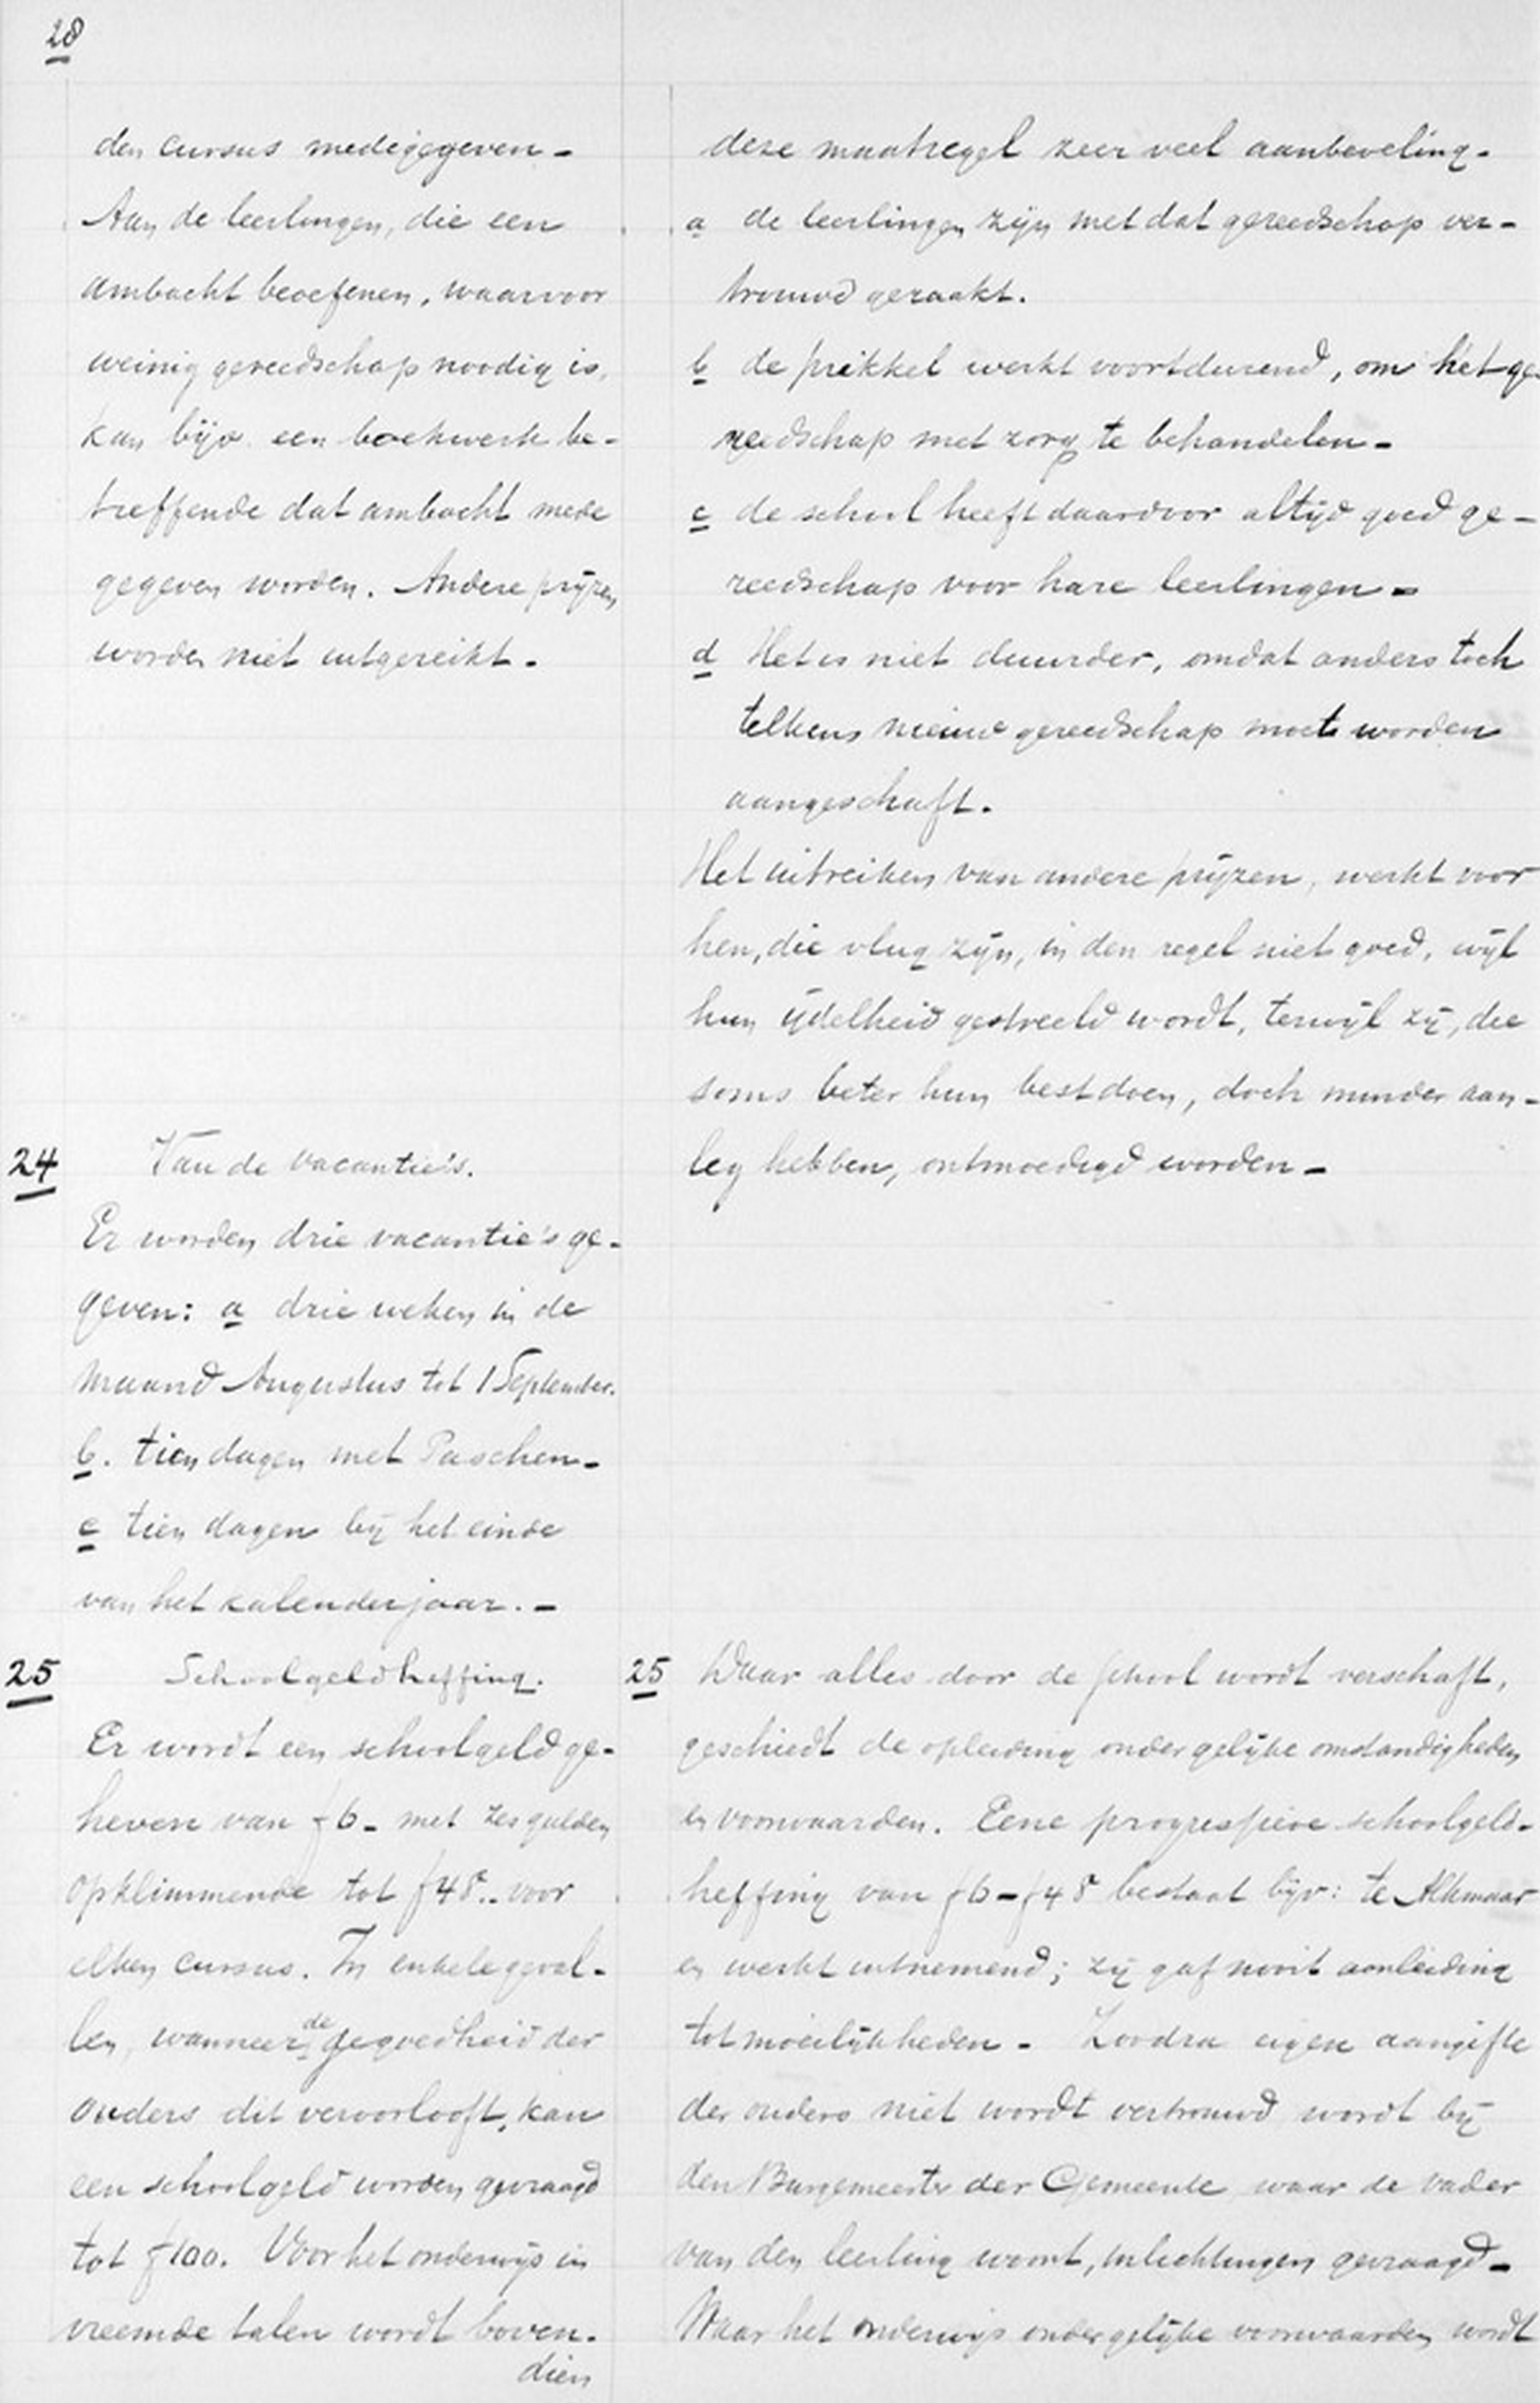 28
den cursus medegegeven -
Aan de leerlingen, die een
ambacht beoefenen, waarvoor
weinig gereedschap noodig is,
kan bijv. een boekwerk be-
treffende dat ambacht mede
gegeven worden. Andere prijzen
worden niet uitgereikt.
24 Van de vacantie's.
Er worden drie vacantie's ge-
geven: a drie weken in de
maand Augustus tot 1 September.
b. tien dagen met Paschen -
c tien dagen bij het einde
van het kalenderjaar. -
25 Schoolgeldheffing.
Er wordt een schoolgeld ge-
heven van f6 - met zes gulden
opklimmende tot f48.- voor
elken cursus. In enkele geval-
len, wanneer de gegoedheid der
ouders dit veroorlooft, kan
een schoolgeld worden gevraagd
tot f100. Voor het onderwijs in
vreemde talen wordt boven-
dien
deze maatregel zeer veel aanbeveling.
a de leerlingen zijn met dat gereedschap ver-
trouwd geraakt.
b de prikkel werkt voortdurend, om het ge-
reedschap met zorg te behandelen -
c de school heeft daardoor altijd goed ge-
reedschap voor hare leerlingen -
d Het is niet duurder, omdat anders toch
telkens nieuw gereedschap moet worden
aangeschaft.
Het uitreiken van andere prijzen, werkt voor
hen, die vlug zijn, in den regel niet goed, wijl
hun ijdelheid gestreeld wordt, terwijl zij, die
soms beter hun best doen, doch minder aan-
leg hebben, ontmoedigd worden -
25 Waar alles door de school wordt verschaft,
geschiedt de opleiding onder gelijke omstandigheden
en voorwaarden. Eene progressieve schoolgeld-
heffing van f6 - f48 bestaat bijv: te Alkmaar
en werkt uitnemend; zij gaf nooit aanleiding
tot moeilijkheden - Zoodra eigen aangifte
der ouders niet wordt vertrouwd wordt bij
den Burgemeester der Gemeente waar de vader
van den leerling woont, inlichtingen gevraagd -
Waar het onderwijs onder gelijke voorwaarden wordt